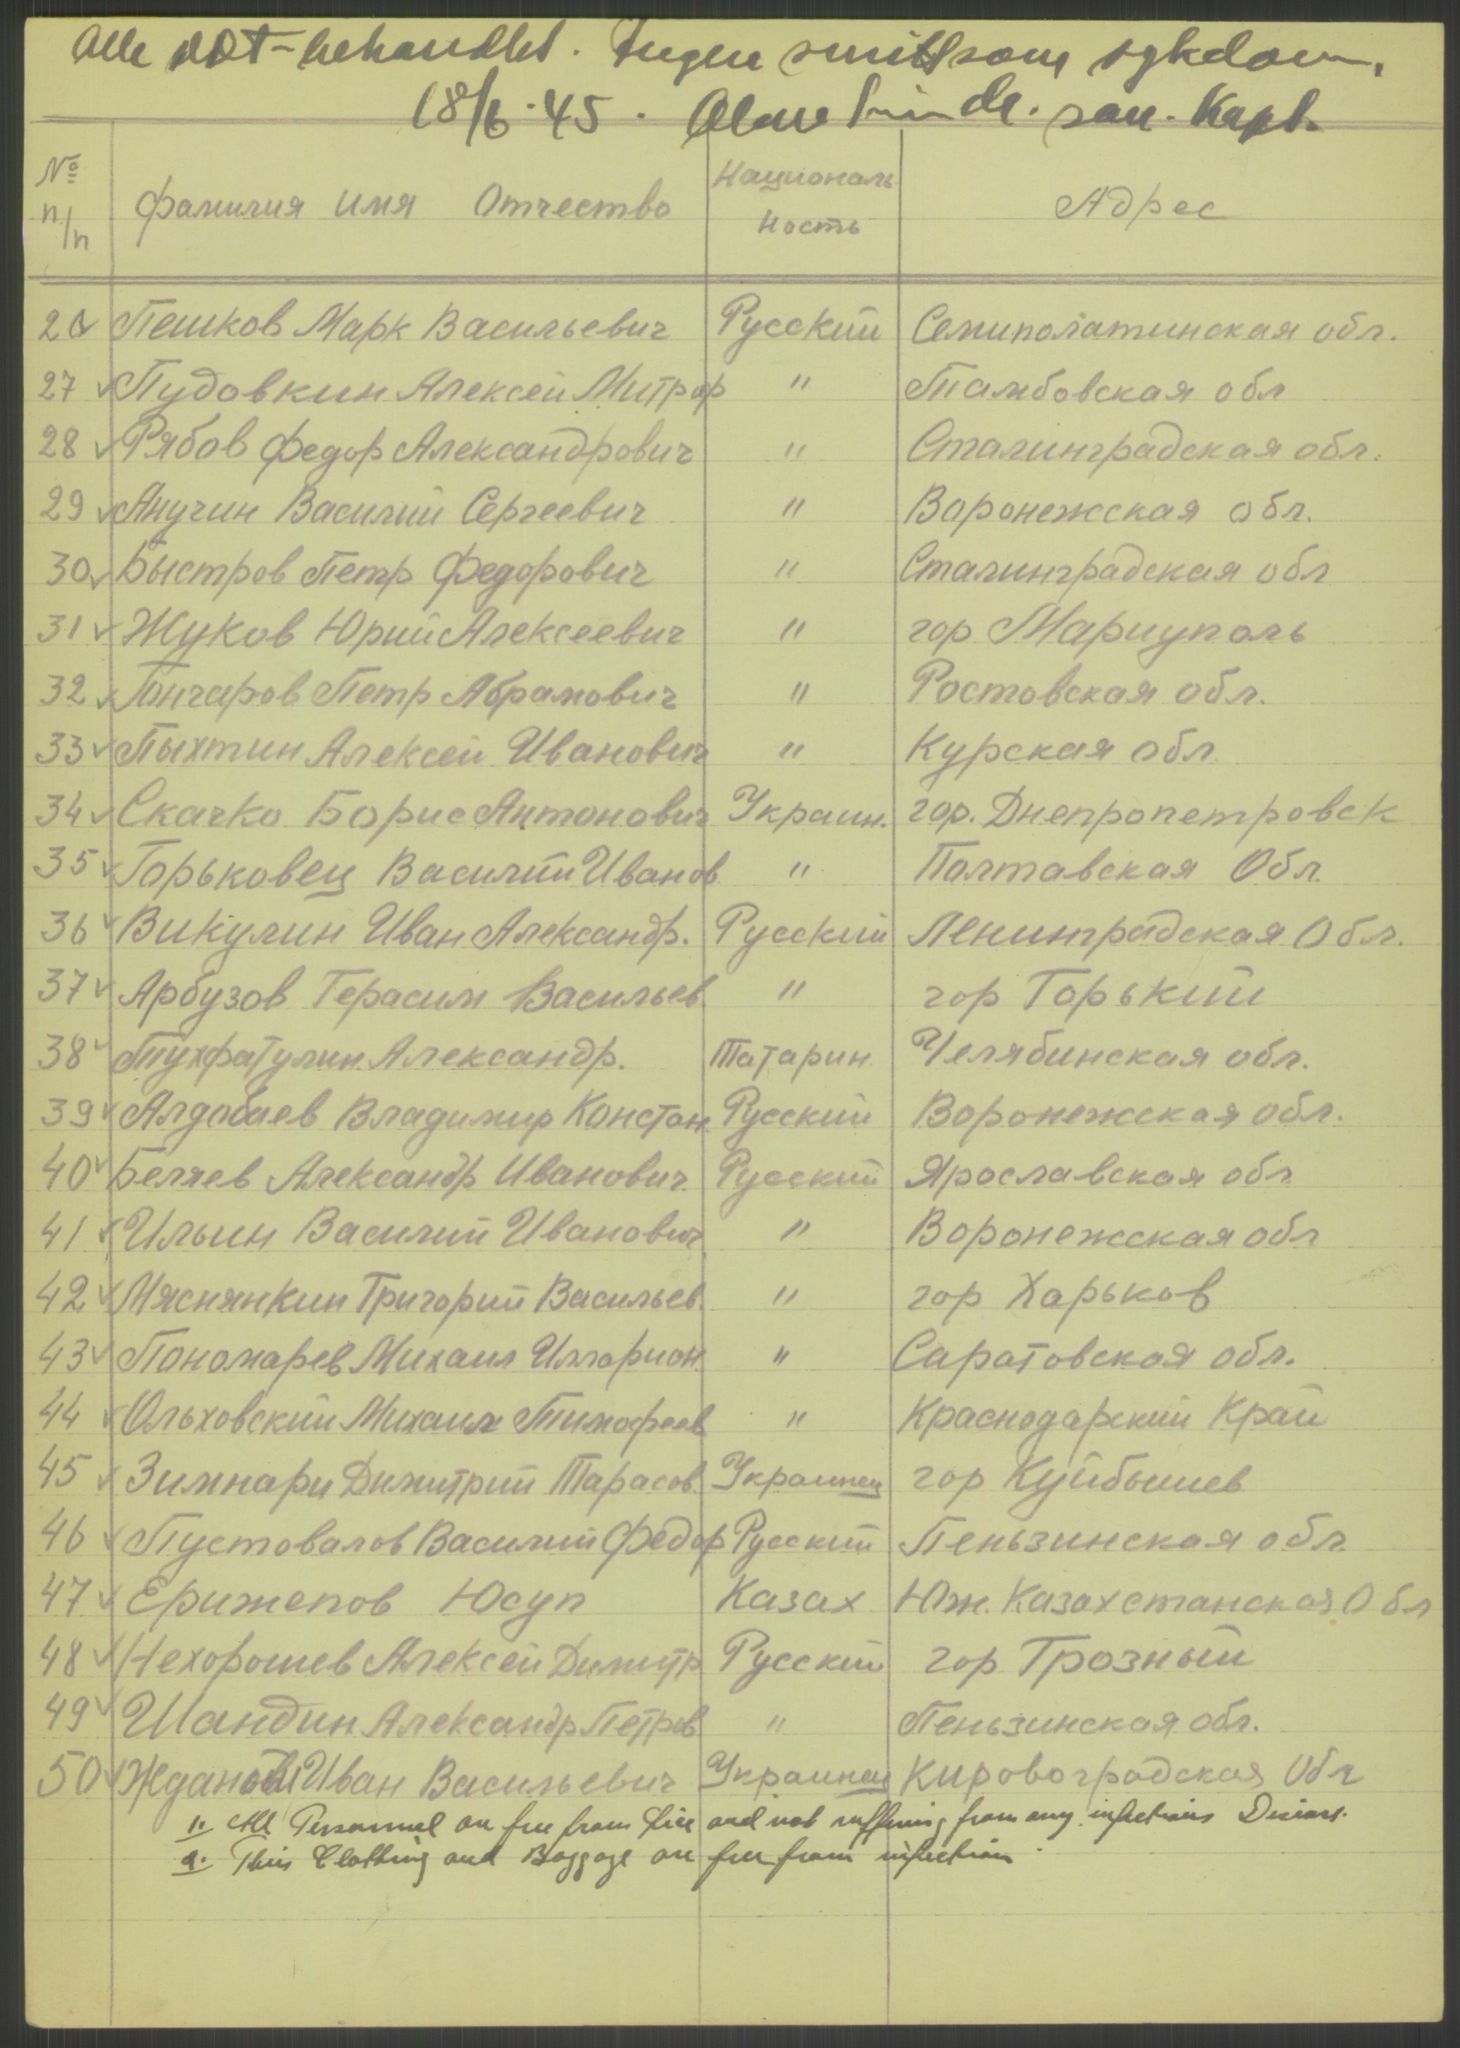 Alle DDT-behandlet. Ingen smittsom sykdom.
18/6.45. san. Kapt.
№ п/п Фамилия Имя Отчество Националь ность Адрес
26 Пешков Марк Васильевич Русский Семиполатинская обл.
27 Пудовкин Алексей Митроф " Тамбовская обл
28 Рябов Федор Александрович " Сталинградская обл.
29 Анучин Василий Сергеевич " Воронежская обл.
30 Быстров Петр Федорович " Сталинградская обл
31 Жуков Юрий Алексеевич " гор Мариуполь
32 Гончаров Петр Абрамович " Ростовская обл.
33 Пыхтин Алексей Иванович " Курская обл
34 Скачко Борис Антонович Украин. гор. Днепропетровск
35 Горьковец Василий Иванов " Полтавская Обл.
36 Викулин Иван Александр. Русский Ленинградская Обл.
37 Арбузов Герасим Васильев. " гор Горький
38 Тухфатулин Александр. Татарин Челябинская обл.
39 Владимир Констан. Русский Воронежская обл.
40 Беляев Александр Иванович Русский Ярославская обл
41 Ильин Василий Иванович " Воронежская обл
42 Мяснянкин Григорий Васильев. " гор Харьков
43 Пономарев Михаил Илларион. " Саратовская обл.
44 Ольховский Михаил Тимофеев " Краснодарский Край
45 Зимнари Димитрий Тарасов. Украинец гор Куйбышев
46 Пустовалов Василий Федор Русский Пеньзинская обл.
47 Ерижепов Юсуп Казах Юж. Казахстанская Обл
48 Нехорошев Алексей Димитр Русский гор Грозный
49 Шандин Александр Петров " Пеньзинская обл.
50 Иван Васильевич Украинец Кировоградская Обл
1. All Personnel are free from lice and not suffering from any infectious Disease.
2. Their Clothing and Baggage are free from infection.